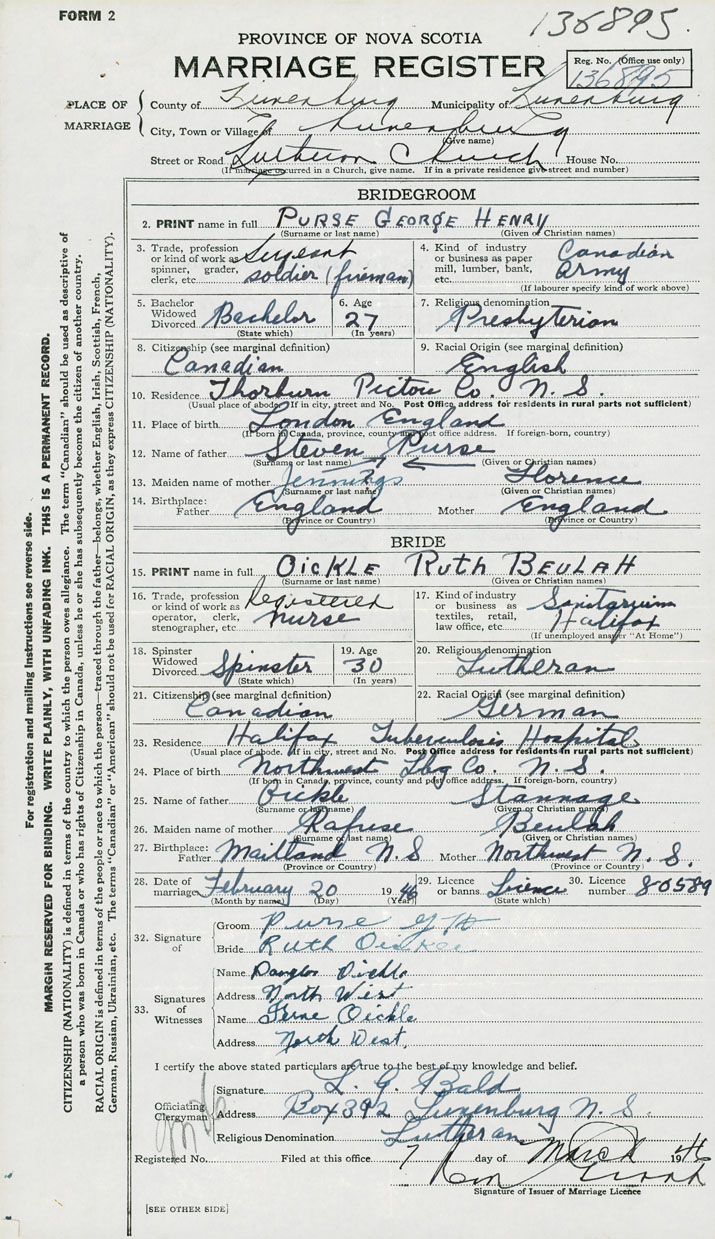 FORM 2
136895.
PROVINCE OF NOVA SCOTIA
MARRIAGE REGISTER
Reg. No. (Office use only)
136895
PLACE OF MARRIAGE
County of Lunenburg Municipality of Lunenburg
City, Town or Village of Lunenburg
(Give name)
Street or Road Lutheran Church House No.
(If marriage occurred in a Church, give name. If in a private residence give street and number)
BRIDEGROOM
2. PRINT name in full PURSE GEORGE HENRY
(Surname or last name) (Given or Christian names)
3. Trade, profession or kind of work as spinner, grader, clerk, etc. Sergeant soldier (fireman)
4. Kind of industry or business as paper mill, lumber, bank, etc. Canadian Army
(If labourer specify kind of work above)
5. Bachelor Widowed Divorced Bachelor
(State which)
6. Age 27
(In years)
7. Religious denomination Presbyterian
8. Citizenship (see marginal definition) Canadian
9. Racial Origin (see marginal definition) English
10. Residence Thorburn Pictou Co. N. S.
(Usual place of abode. If in city, street and No. Post Office address for residents in rural parts not sufficient)
11. Place of birth London England
(If born in Canada, province, county and post office address. If foreign-born, country)
12. Name of father Steven Purse
(Surname or last name) (Given or Christian names)
13. Maiden name of mother Jennings Florence
(Surname or last name) (Given or Christian names)
14. Birthplace: Father England Mother England
(Province or Country) (Province or Country)
BRIDE
15. PRINT name in full OICKLE RUTH BEULAH
(Surname or last name) (Given or Christian names)
16. Trade, profession or kind of work as operator, clerk, stenographer, etc. Registered nurse
17. Kind of industry or business as textiles, retail, law office, etc. Sanitarium Halifax
(If unemployed answer "At Home")
18. Spinster Widowed Divorced Spinster
(State which)
19. Age 30
(In years)
20. Religious denomination Lutheran
21. Citizenship (see marginal definition) Canadian
22. Racial Origin (see marginal definition) German
23. Residence Halifax Tuberculosis Hospital
(Usual place of abode. If in city, street and No. Post Office address for residents in rural parts not sufficient)
24. Place of birth Northwest Lbg Co. N. S.
(If born in Canada, province, county and post office address. If foreign-born, country)
25. Name of father Oickle Stannage
(Surname or last name) (Given or Christian names)
26. Maiden name of mother Rafuse Beulah
(Surname or last name) (Given or Christian names)
27. Birthplace: Father Maitland N. S Mother Northwest N. S.
(Province or Country) (Province or Country)
28. Date of marriage February 20 1946
(Month by name) (Day) (Year)
29. Licence or banns Licence
(State which)
30. Licence number 80589
32. Signature of
Groom Purse G H
Bride Ruth Oickle
33. Signatures of Witnesses
Name Douglas Oickle
Address North West
Name Oickle
Address North West.
I certify the above stated particulars are true to the best of my knowledge and belief.
Officiating Clergyman
Signature L. G. Bald
Address Box 392 Lunenburg N. S.
Religious Denomination Lutheran
Registered No. Filed at this office 7 day of March 1946
Signature of Issuer of Marriage Licence
[SEE OTHER SIDE]
For registration and mailing instructions see reverse side.
MARGIN RESERVED FOR BINDING. WRITE PLAINLY, WITH UNFADING INK. THIS IS A PERMANENT RECORD.
CITIZENSHIP (NATIONALITY) is defined in terms of the country to which the person owes allegiance. The term "Canadian" should be used as descriptive of
a person who was born in Canada or who has rights of Citizenship in Canada, unless he or she has subsequently become the citizen of another country.
RACIAL ORIGIN is defined in terms of the people or race to which the person—traced through the father—belongs, whether English, Irish, Scottish, French,
German, Russian, Ukrainian, etc. The terms "Canadian" or "American" should not be used for RACIAL ORIGIN, as they express CITIZENSHIP (NATIONALITY).